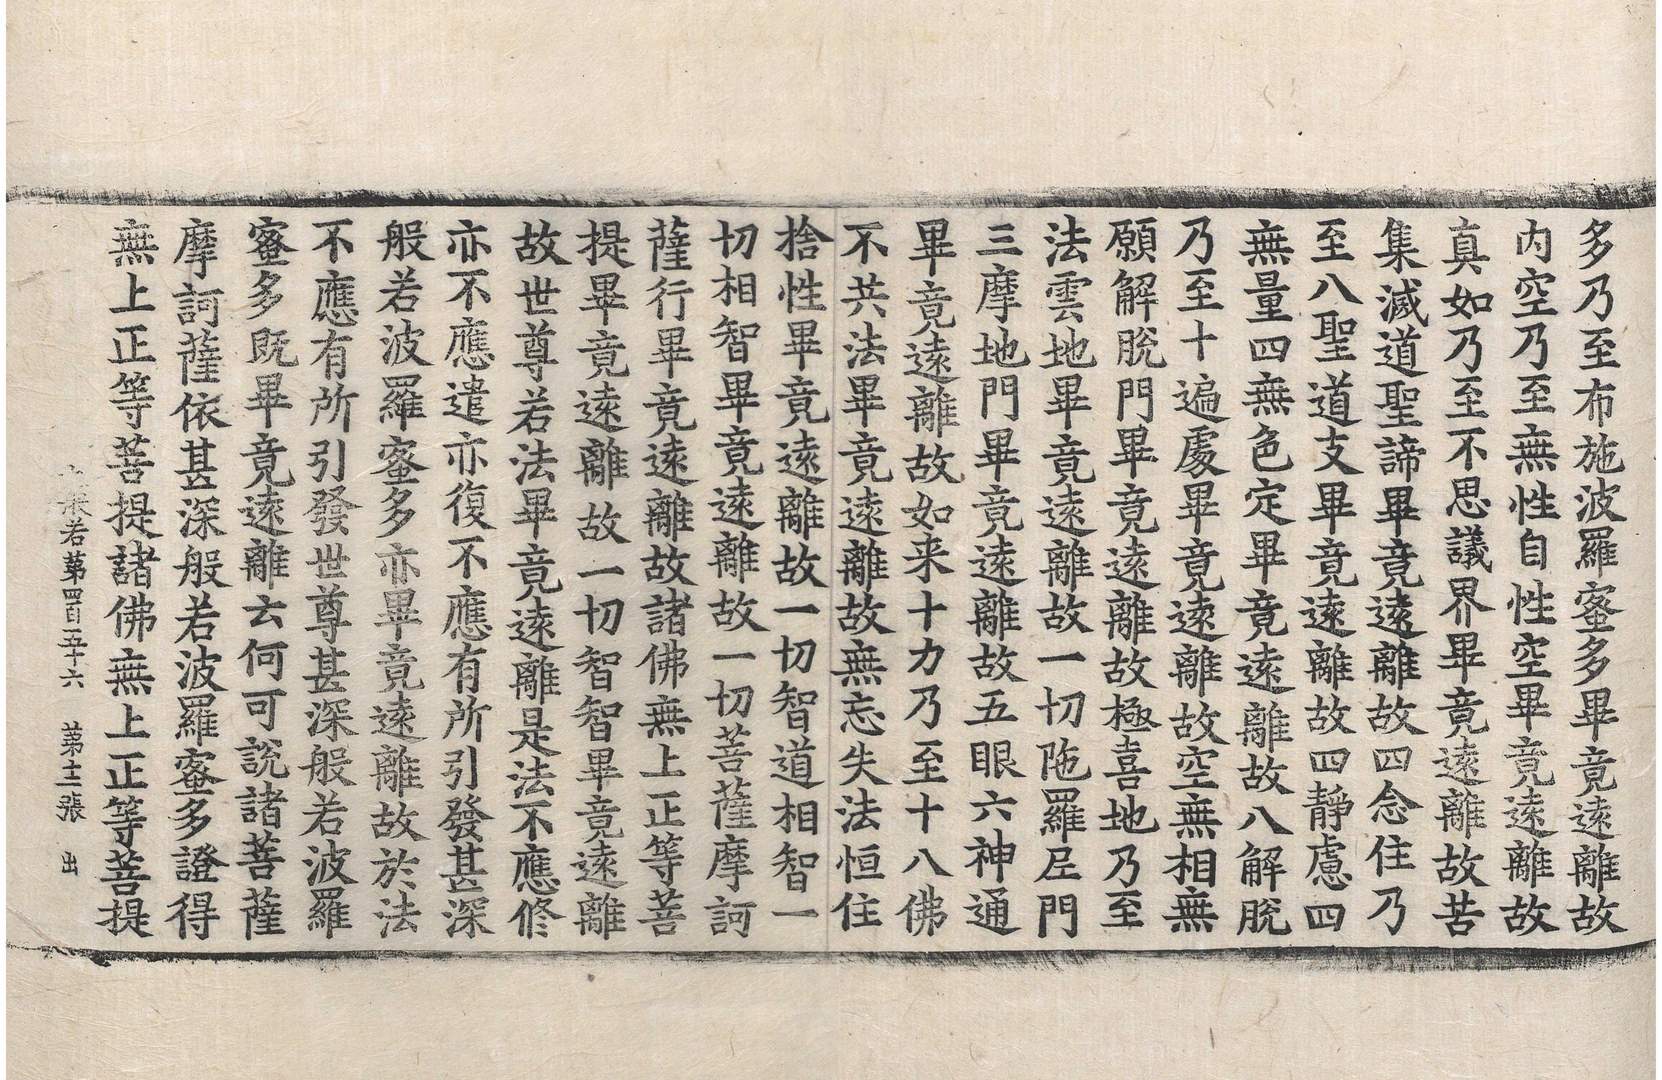 多乃至布施波羅蜜多畢竟遠離故
内空乃至無性自性空畢竟遠離故
真如乃至不思議界畢竟遠離故苦
集滅道聖諦畢竟遠離故四念住乃
至八聖道支畢竟遠離故四靜慮四
無量四無色定畢竟遠離故八解脫
乃至十遍處畢竟遠離故空無相無
願解脫門畢竟遠離故極喜地乃至
法雲地畢竟遠離故一切陁羅尼門
三摩地門畢竟遠離故五眼六神通
畢竟遠離故如来十力乃至十八佛
不共法畢竟遠離故無忘失法恒住
捨性畢竟遠離故一切智道相智一
切相智畢竟遠離故一切菩薩摩訶
薩行畢竟遠離故諸佛無上正等菩
提畢竟遠離故一切智智畢竟遠離
故世尊若法畢竟遠離是法不應修
亦不應遣亦復不應有所引發甚深
般若波羅蜜多亦畢竟遠離故於法
不應有所引發世尊甚深般若波羅
蜜多既畢竟遠離云何可說諸菩薩
摩訶薩依甚深般若波羅蜜多證得
無上正等菩提諸佛無上正等菩提
若苐四百五十六 苐十二張 出